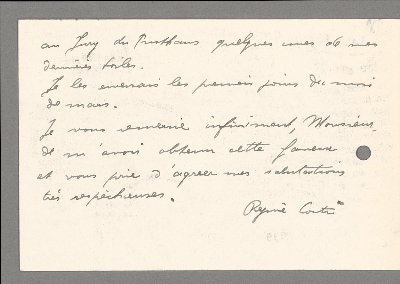 au Jury du Kunsthaus quelques unes de mes
dernières toiles.
Je les enverrais les premiers jours du mois
de mars.
Je vous remercie infiniment, Monsieur,
de m'avoir obtenu cette faveur
et vous prie d'agréer mes salutations
très respectueuses.